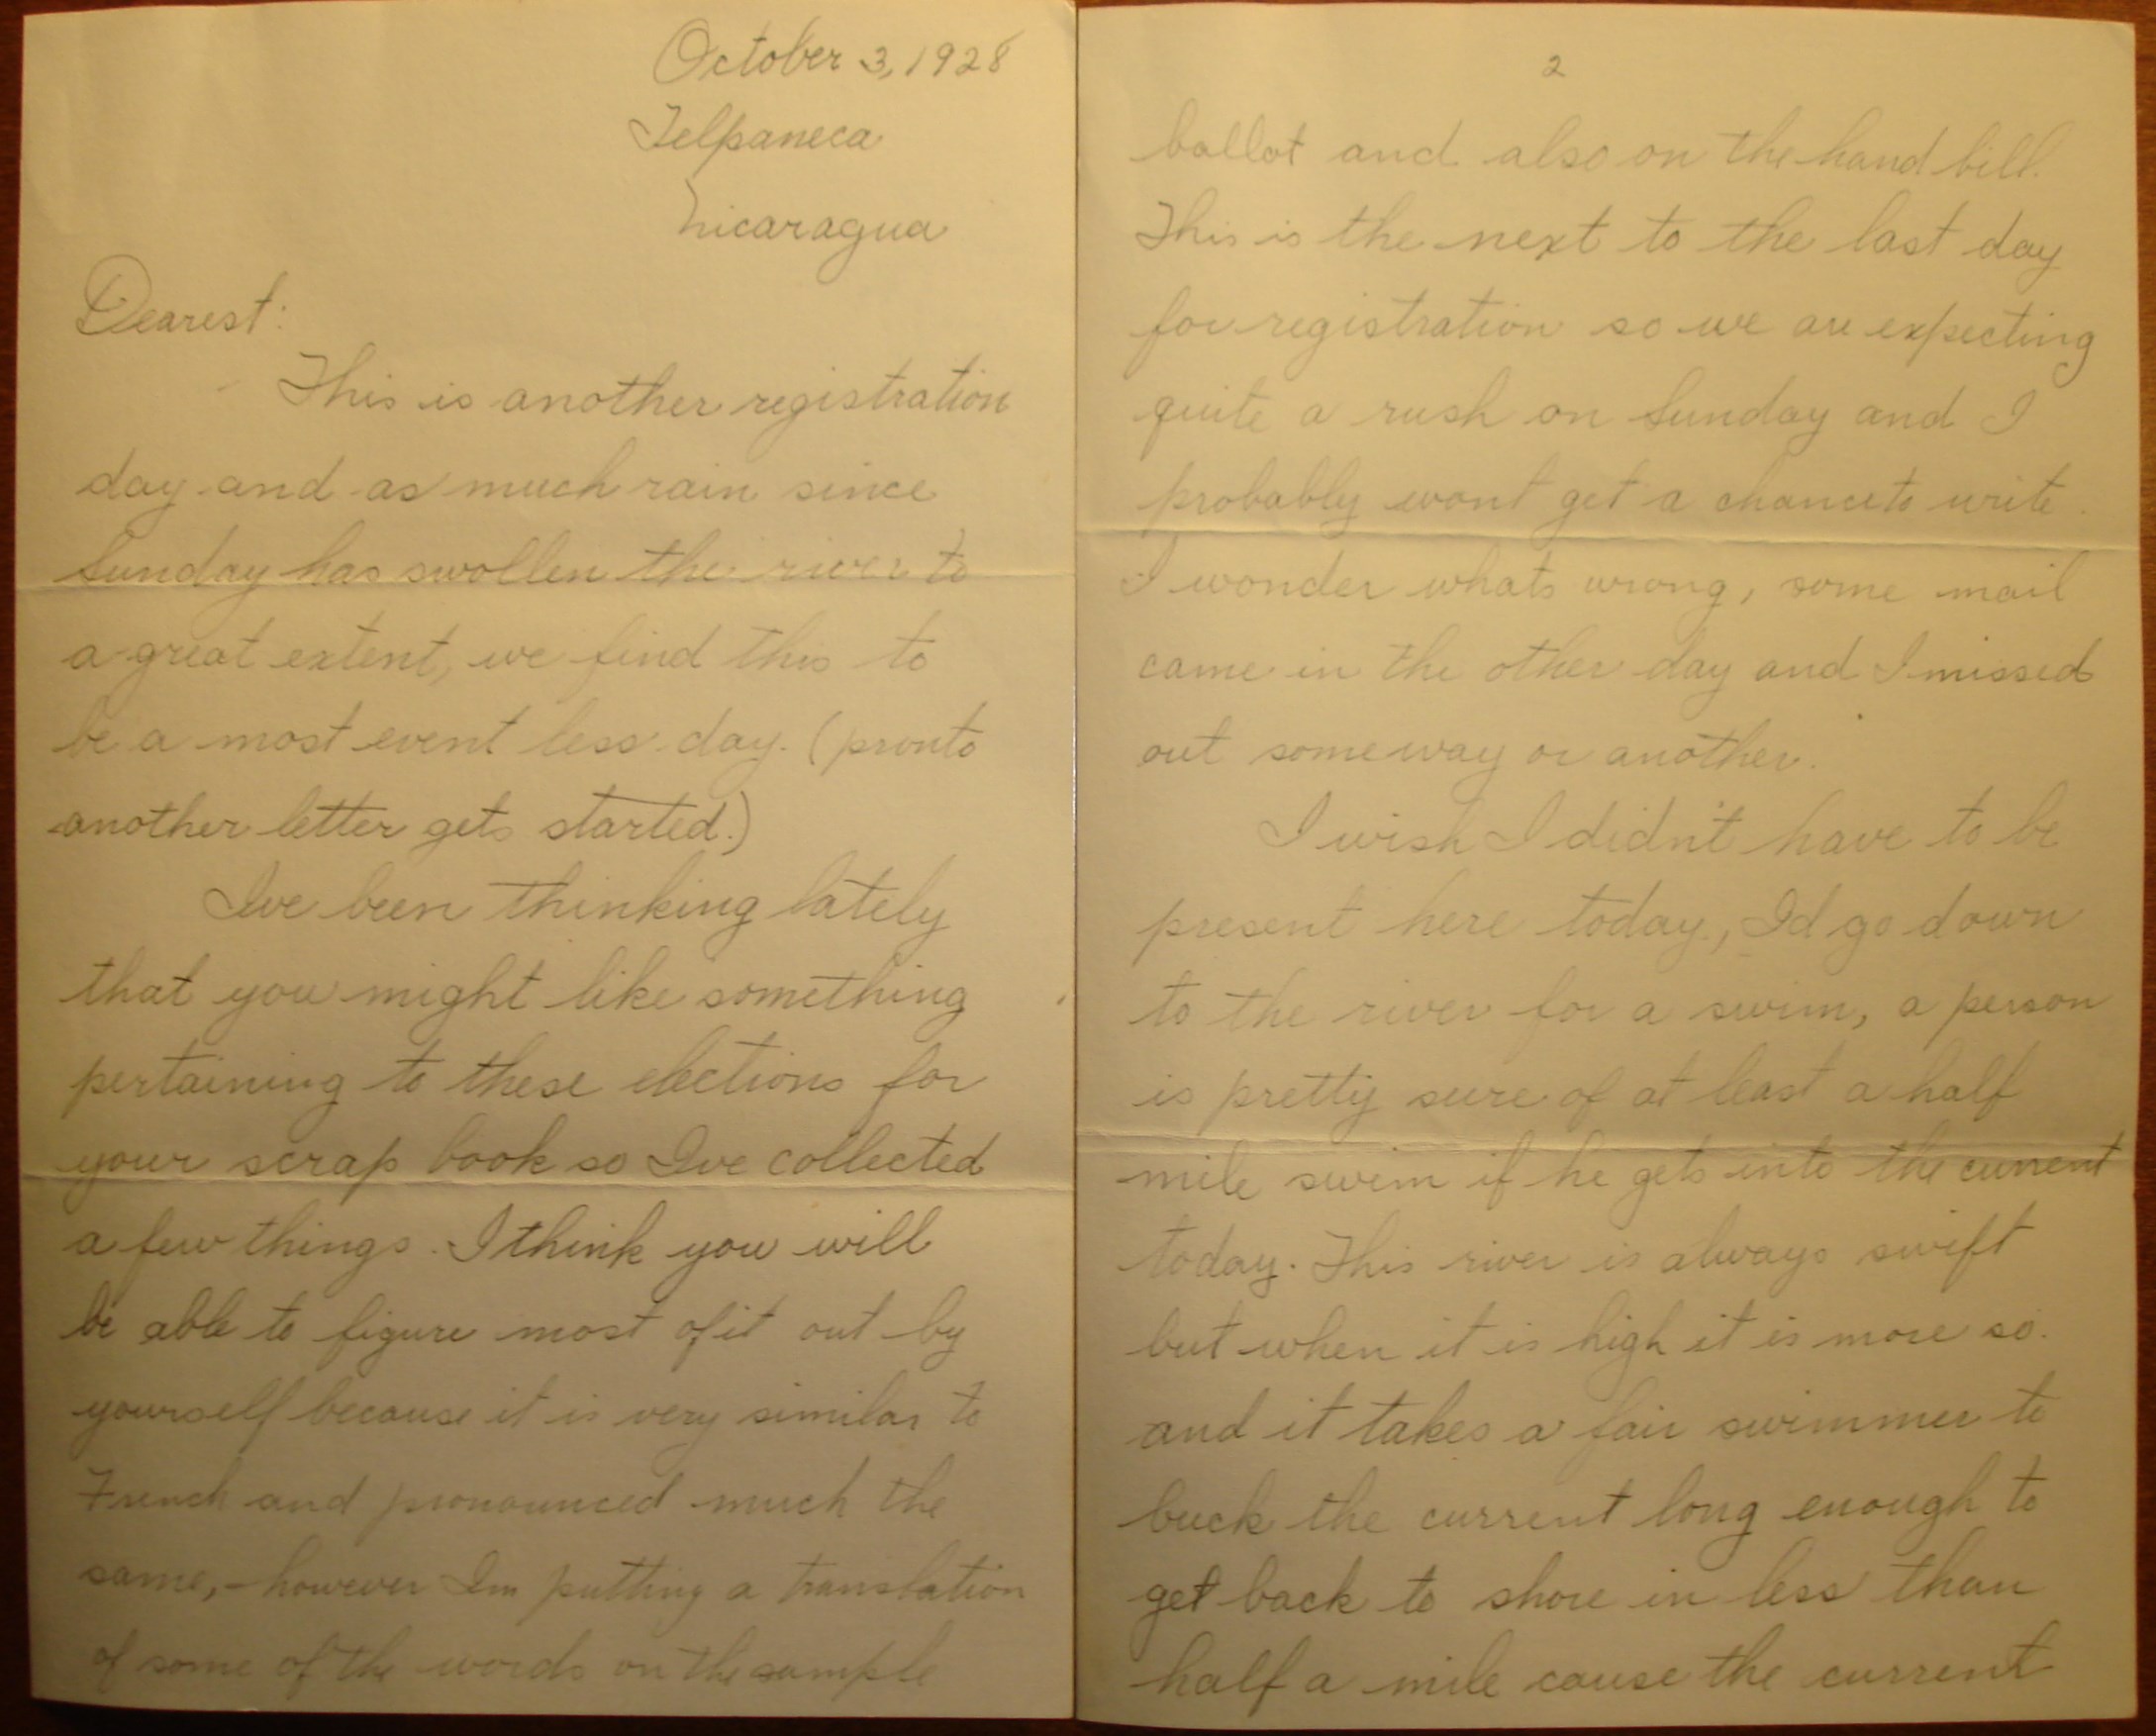 October 3, 1928
Telpaneca
Nicaragua
Dearest:
This is another registration
day and as much rain since
Sunday has swollen the river to
a great extent, we find this to
be a most event less day. (pronto
another letter gets started.)
Ive been thinking lately
that you might like something
pertaining to these elections for
your scrap book so Ive collected
a few things. I think you will
be able to figure most of it out by
yourself because it is very similar to
French and pronounced much the
same, - however Im putting a translation
of some of the words on the sample
2
ballot and also on the hand bill.
This is the next to the last day
for registration so we are expecting
quite a rush on Sunday and I
probably wont get a chance to write.
I wonder whats wrong, some mail
came in the other day and I missed
out someway or another.
I wish I didn't have to be
present here today, Id go down
to the river for a swim, a person
is pretty sure of at least a half
mile swim if he gets into the current
today. This river is always swift
but when it is high it is more so.
and it takes a fair swimmer to
buck the current long enough to
get back to shore in less than
half a mile cause the current